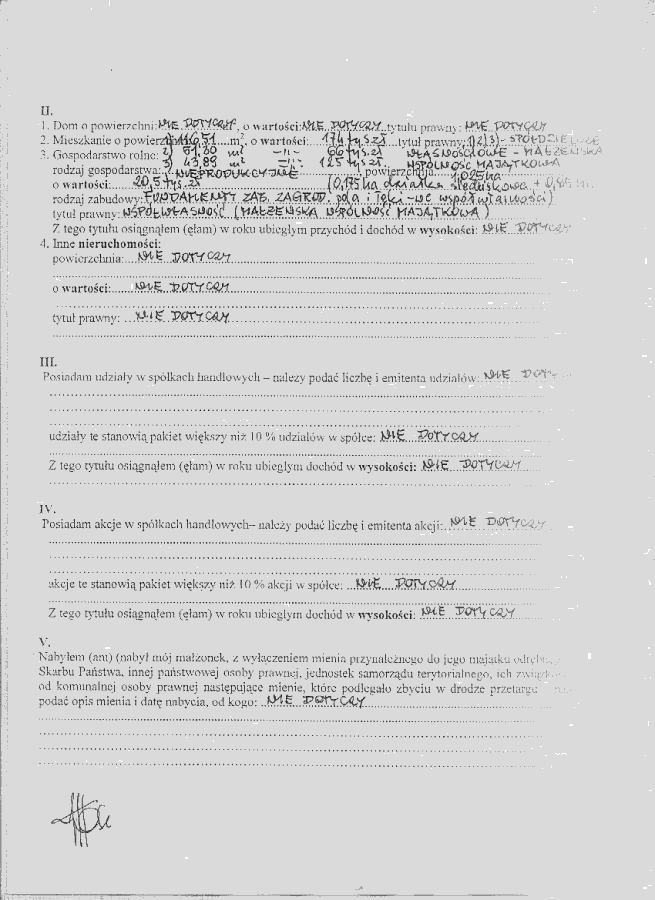 II.
1. Dom o powierzchni: NIE DOTYCZY, o wartości: NIE DOTYCZY tytułu prawny: NIE DOTYCZY
2. Mieszkanie o powierzchni: 1) 116,51 m², o wartości: 174 tys. zł tytuł prawny: 1) 2) 3) - SPÓŁDZIELCZE
3. Gospodarstwo rolne: 2) 61,80 m² -"- 66 tys. zł WŁASNOŚCIOWE - MAŁŻEŃSKA
3) 43,89 m² -"- 125 tys. zł WSPÓLNOŚĆ MAJĄTKOWA
rodzaj gospodarstwa: NIEPRODUKCYJNE, powierzchnia: 1,025 ha
o wartości: 20,5 tys. zł (0,175 ha działka siedliskowa + 0,85 ha
rodzaj zabudowy: FUNDAMENTY ZAB. ZAGROD. pola i łąki -we współwłasności)
tytuł prawny: WSPÓŁWŁASNOŚĆ (MAŁŻEŃSKA WSPÓLNOŚĆ MAJĄTKOWA)
Z tego tytułu osiągnąłem (ęłam) w roku ubiegłym przychód i dochód w wysokości: NIE DOTYCZY
4. Inne nieruchomości:
powierzchnia: NIE DOTYCZY
o wartości: NIE DOTYCZY
tytuł prawny: NIE DOTYCZY
III.
Posiadam udziały w spółkach handlowych – należy podać liczbę i emitenta udziałów: NIE DOTY
udziały te stanowią pakiet większy niż 10 % udziałów w spółce: NIE DOTYCZY
Z tego tytułu osiągnąłem (ęłam) w roku ubiegłym dochód w wysokości: NIE DOTYCZY
IV.
Posiadam akcje w spółkach handlowych– należy podać liczbę i emitenta akcji: NIE DOTYCZY
akcje te stanowią pakiet większy niż 10 % akcji w spółce: NIE DOTYCZY
Z tego tytułu osiągnąłem (ęłam) w roku ubiegłym dochód w wysokości: NIE DOTYCZY
V.
Nabyłem (am) (nabył mój małżonek, z wyłączeniem mienia przynależnego do jego majątku odrębn
Skarbu Państwa, innej państwowej osoby prawnej, jednostek samorządu terytorialnego, ich związków
od komunalnej osoby prawnej następujące mienie, które podlegało zbyciu w drodze przetargu
podać opis mienia i datę nabycia, od kogo: NIE DOTYCZY